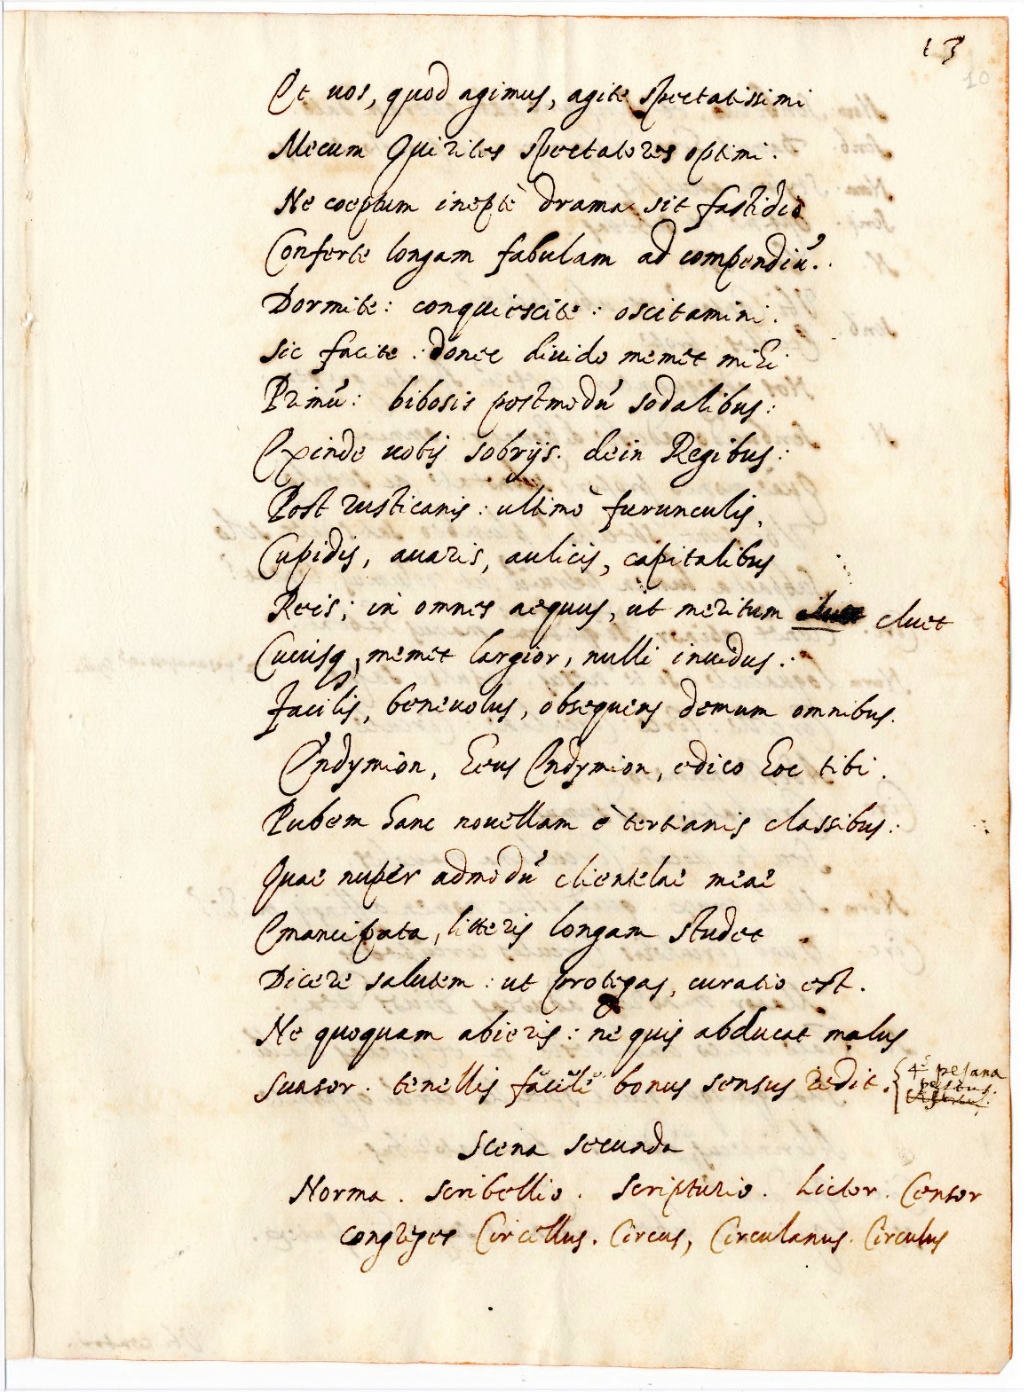 13
10
Et uos, quod agimus, agite spectatissimi
Mecum Quirites spectatores optimi.
Ne coeptum ineptè drama sit fastidio
Conferte longam fabulam ad compendiũ.
Dormite: conquiescite: oscitamini.
Sic facite: donec diuido memet mihi
Primũ: bibosis postmodũ sodalibus:
Exinde uobis sobrijs. dein Regibus:
Post rusticanis: ultimò furunculis,
Cupidis, auaris, aulicis, capitalibus
Reis; in omnes aequus, ut meritum cluet
Cuiusq, memet largior, nulli inuidus.
Facilis, beneuolus, obsequens demum omnibus.
Endymion, heus Endymion, edico hoc tibi.
Pubem hanc nouellam è tertianis classibus:
Quae nuper admodũ clientelae meae
Emancipata, litteris longam studet
Dicere salutem: ut protegas, curatio est.
Ne quoquam abieris: ne quis abducat malus
Suasor. tenellis facilè bonus sensus redit.
Scena secunda
Norma. Scribellio. Scripturio. Lictor. Censor
congreges Circellus. Circus, Circulanus. Circulus